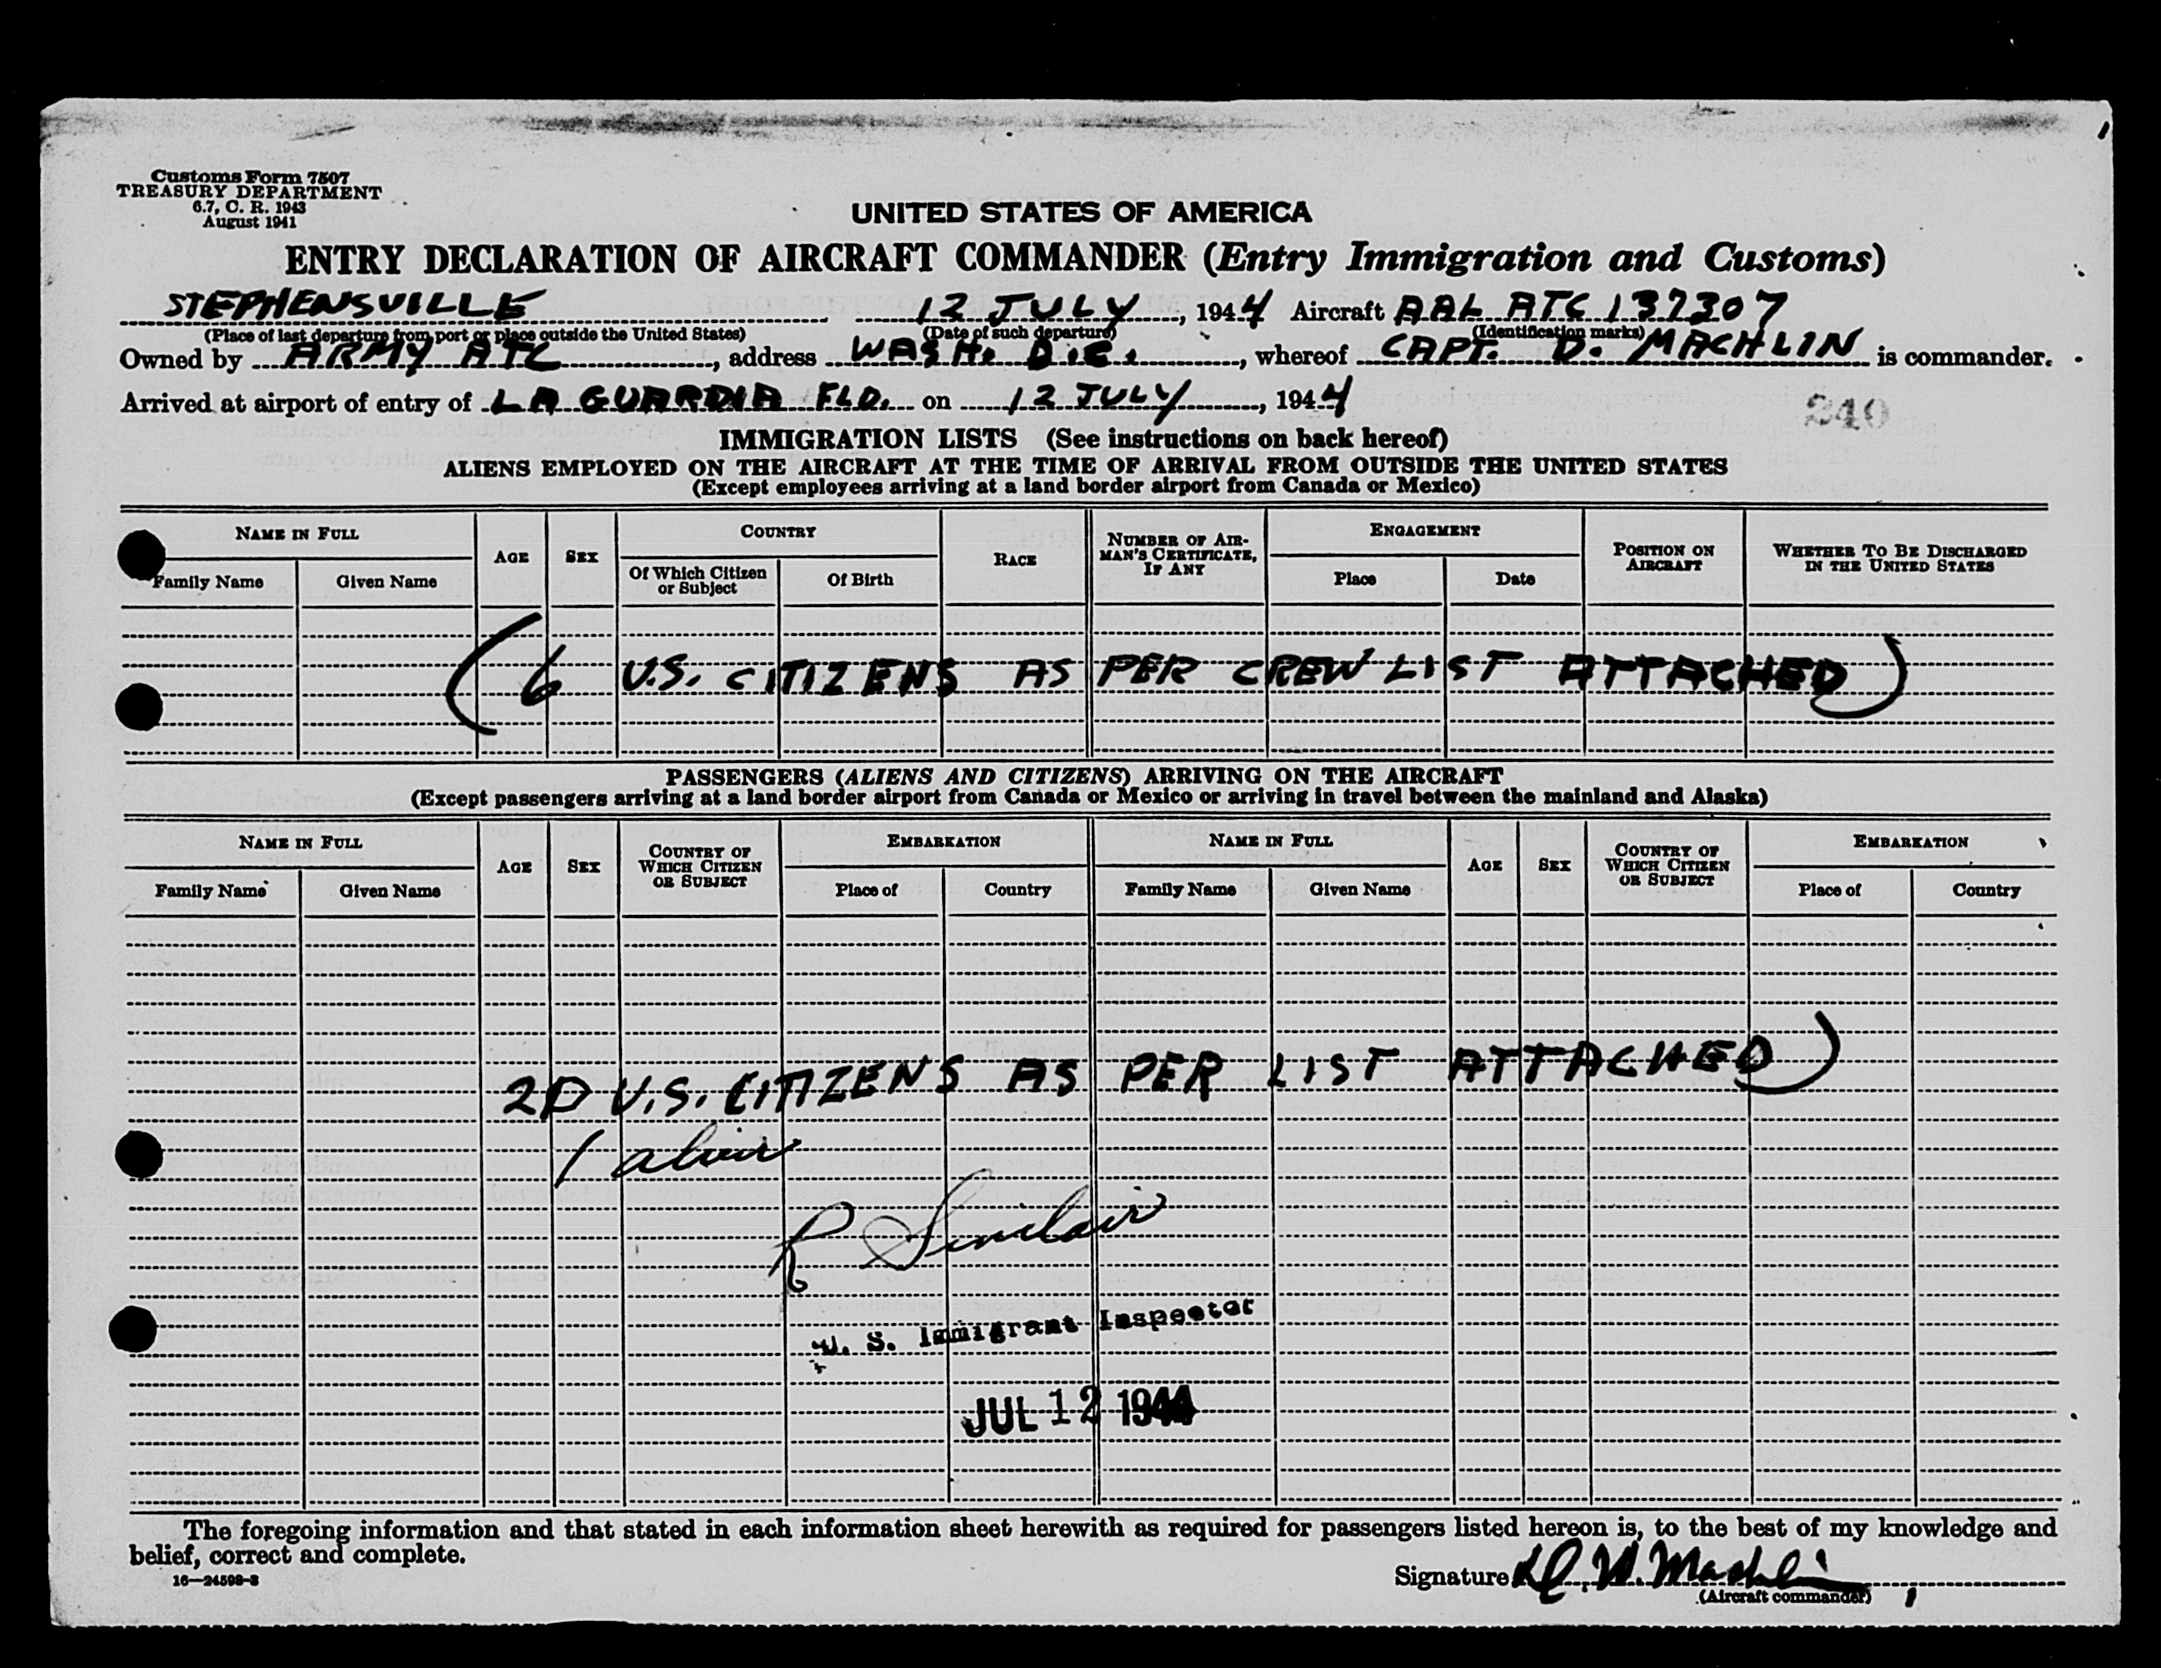 Customs Form 7507
TREASURY DEPARTMENT
6.7, C. R. 1943
August 1941
UNITED STATES OF AMERICA
ENTRY DECLARATION OF AIRCRAFT COMMANDER (Entry Immigration and Customs)
STEPHENSVILLE 12 JULY, 1944 Aircraft AAL ATC 137307
(Place of last departure from port or place outside the United States) (Date of such departure) (Identification marks)
Owned by ARMY ATC, address WASH. D.C., whereof CAPT. D. MACHLIN is commander.
Arrived at airport of entry of LA GUARDIA FLD. on 12 JULY, 1944
240
IMMIGRATION LISTS (See instructions on back hereof)
ALIENS EMPLOYED ON THE AIRCRAFT AT THE TIME OF ARRIVAL FROM OUTSIDE THE UNITED STATES
(Except employees arriving at a land border airport from Canada or Mexico)
NAME IN FULL AGE SEX COUNTRY RACE NUMBER OF AIRMAN'S CERTIFICATE, IF ANY ENGAGEMENT POSITION ON AIRCRAFT WHETHER TO BE DISCHARGED IN THE UNITED STATES
Family Name Given Name Of Which Citizen or Subject Of Birth Place Date
(6 U.S. CITIZENS AS PER CREW LIST ATTACHED)
PASSENGERS (ALIENS AND CITIZENS) ARRIVING ON THE AIRCRAFT
(Except passengers arriving at a land border airport from Canada or Mexico or arriving in travel between the mainland and Alaska)
NAME IN FULL AGE SEX COUNTRY OF WHICH CITIZEN OR SUBJECT EMBARKATION NAME IN FULL AGE SEX COUNTRY OF WHICH CITIZEN OR SUBJECT EMBARKATION
Family Name Given Name Place of Country Family Name Given Name Place of Country
20 U.S. CITIZENS AS PER LIST ATTACHED)
1 alien
R Sinclair
U. S. Immigrant Inspector
JUL 12 1944
The foregoing information and that stated in each information sheet herewith as required for passengers listed hereon is, to the best of my knowledge and
belief, correct and complete.
16—24598-3
Signature D. W. Machlin
(Aircraft commander)